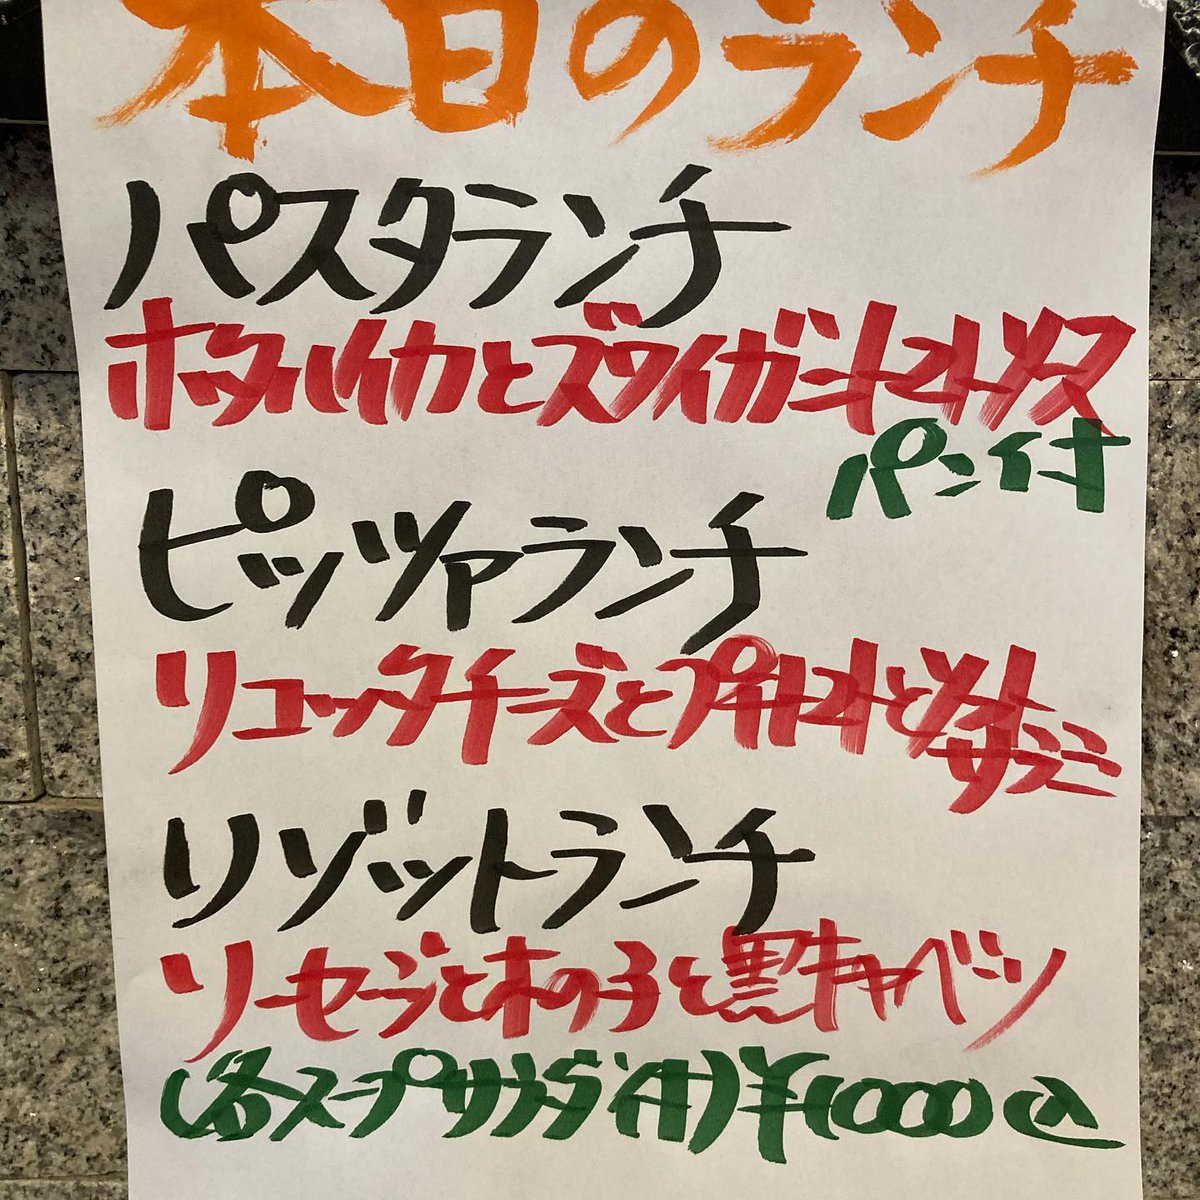 本日のランチ
パスタランチ
ホタルイカとズワイガニトマトソース
パン付
ピッツァランチ
リコッタチーズとプチトマトとソフト
サラミ
リゾットランチ
ソーセージと木の子と黒キャベツ
(各スープサラダ付)¥1000込